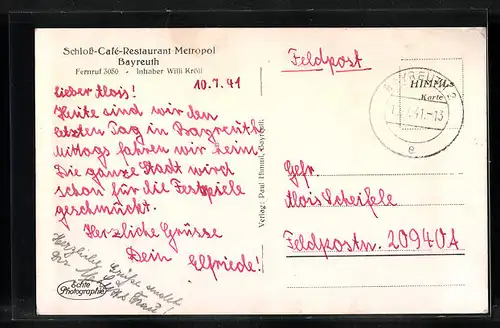 Schloß-Café-Restaurant Metropol
Bayreuth
Fernruf 3080 - Inhaber Willi Kröll
10.7.41
Lieber Alois!
Heute sind wir den
letzten Tag in Bayreuth
Mittags fahren wir heim.
Die ganze Stadt wird
schon für die Festspiele
geschmückt.
Herzliche Grüsse
Dein Elfriede!
Herzliche Grüße sendet
Dir
Echte
Photographie
Verlag: Paul Himml, Bayreuth
Feldpost
HIMML-
Karte
BAYREUTH 2
41.-13
e
Gefr.
Alois Scheifele
Feldpostn. 20940A